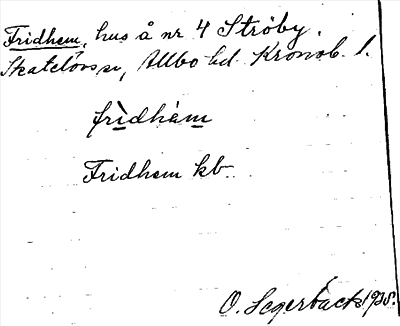 Fridhem, hus å nr 4 Ströby.
Skatelövs sn, Allbo hd. Kronob. l.
frìdhèm
Fridhem kb.
O. Segerbäck 1935.